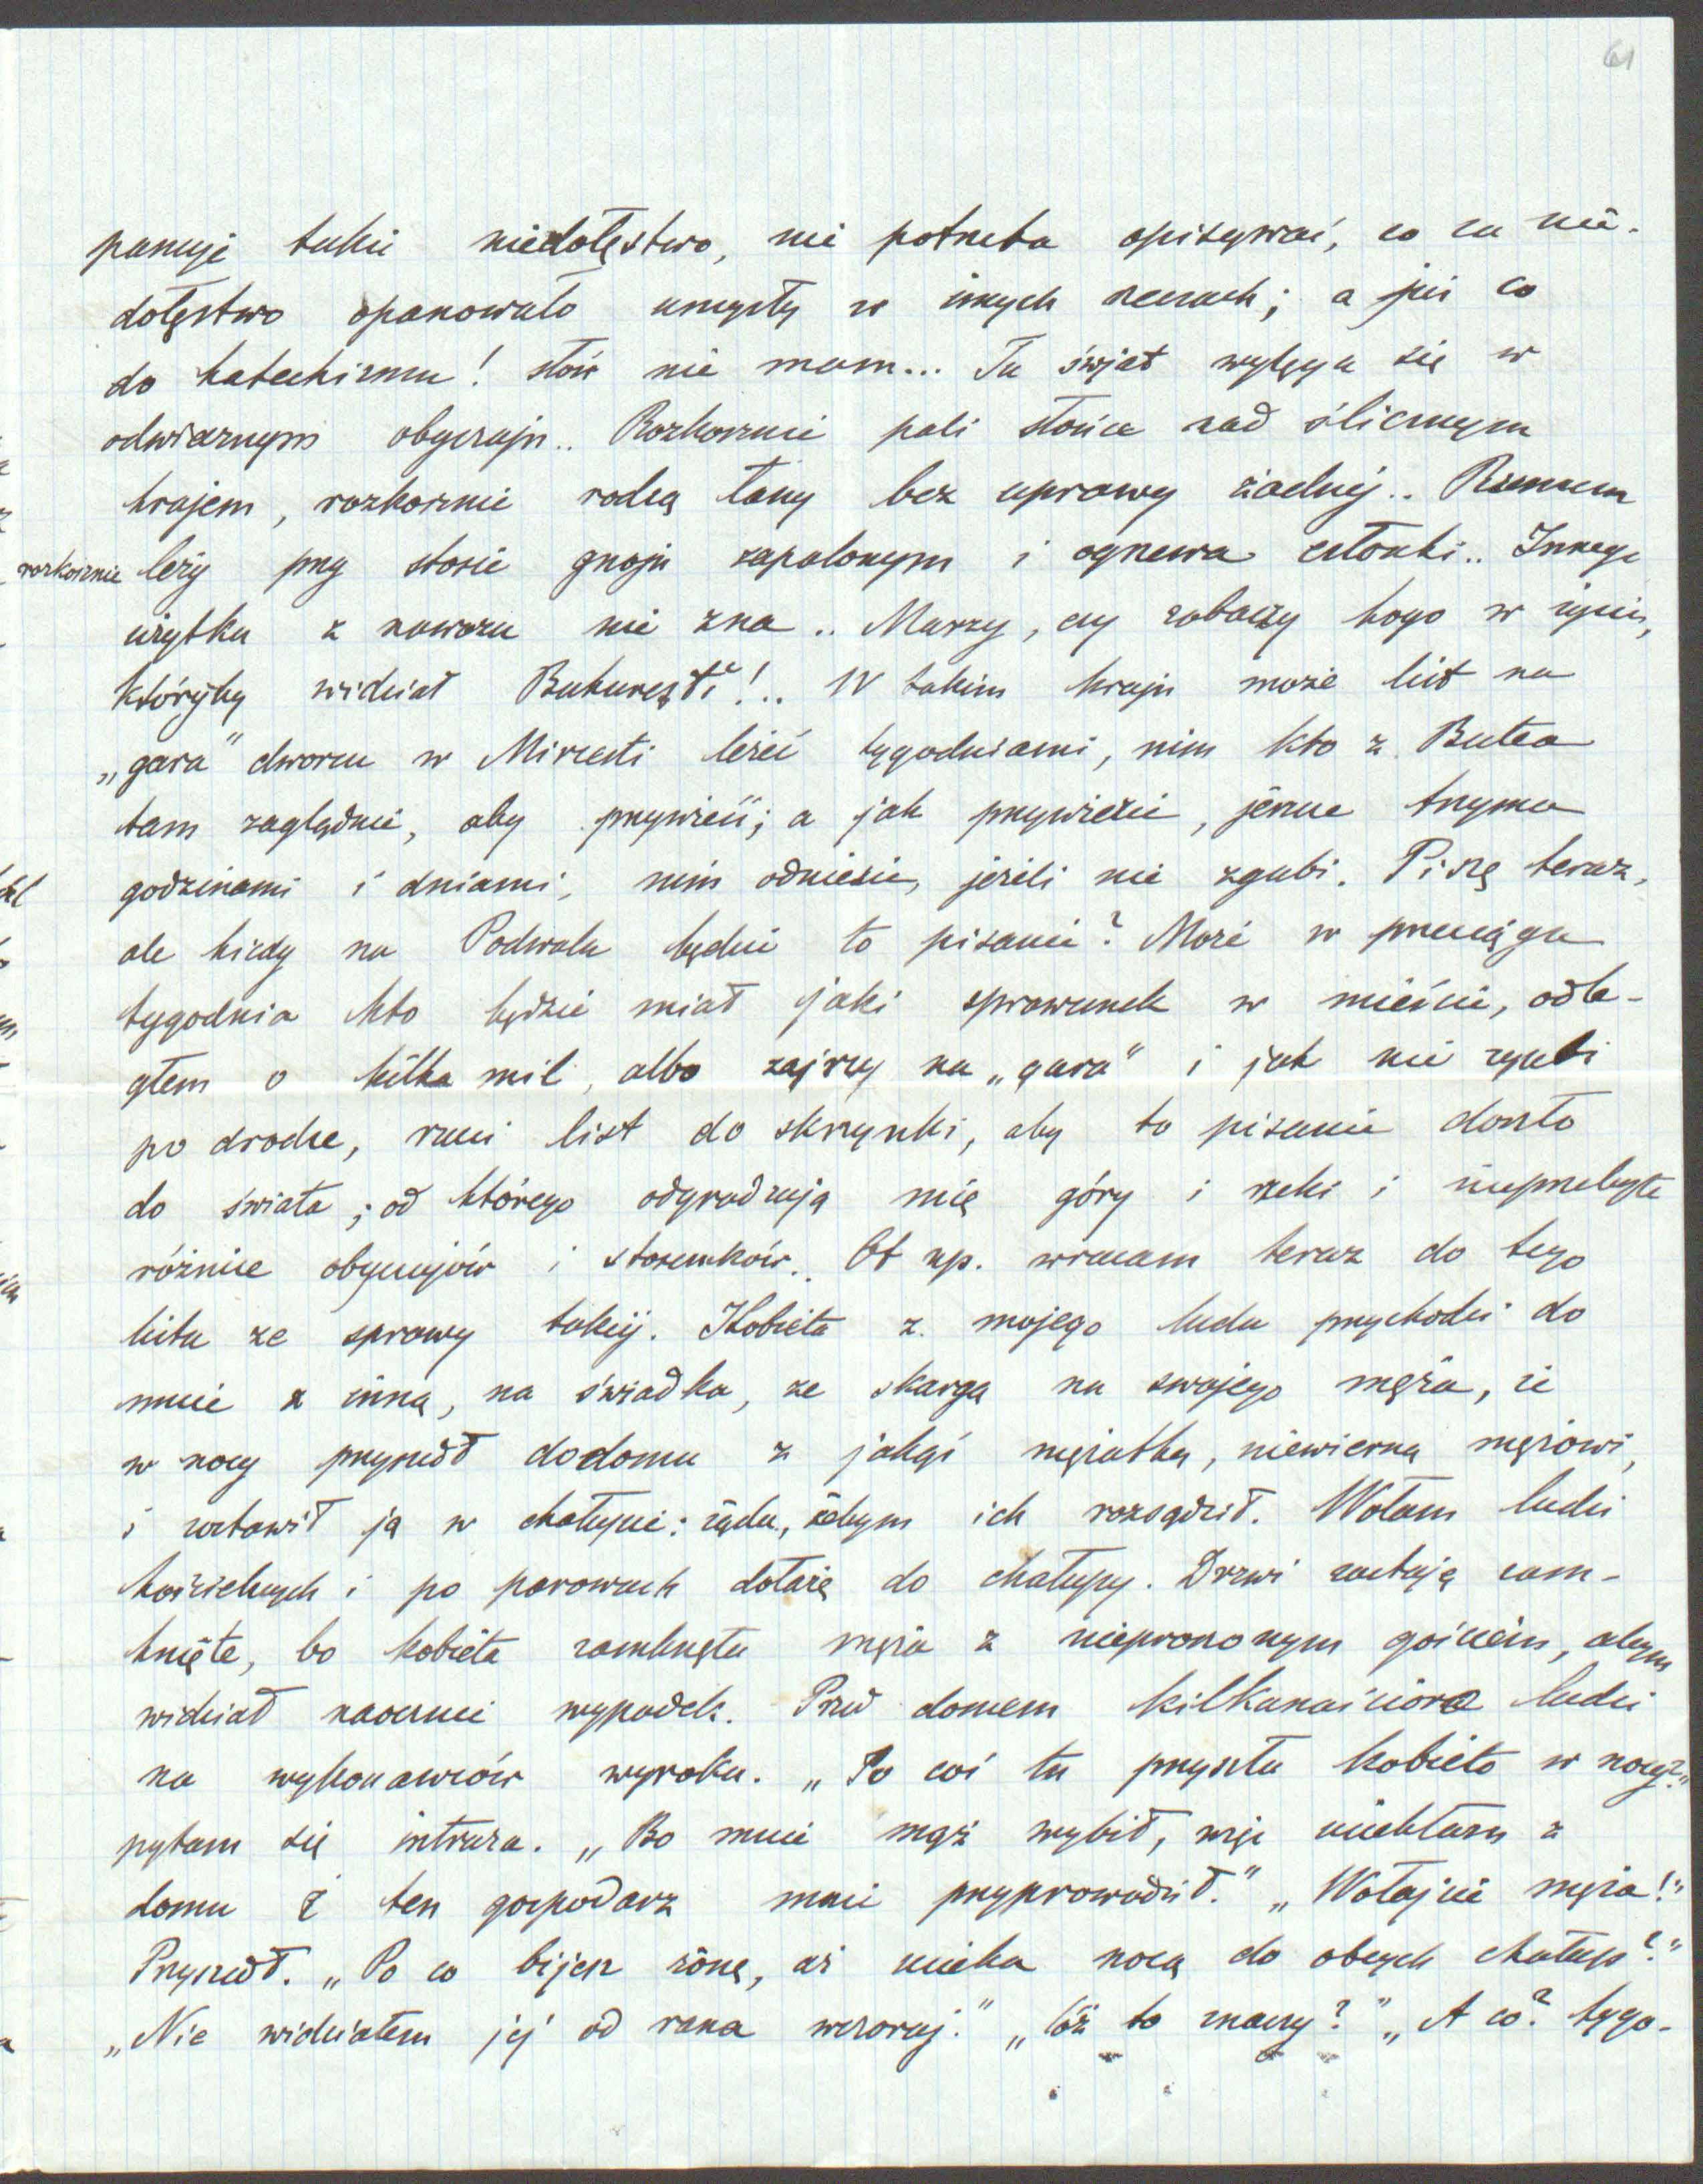 61
panuje takie niedołęstwo, nie potrzeba opisywać, co za nie-
dołęstwo opanowało umysły w innych rzeczach; a już co
do katechizmu! słów nie mam... Tu świat wylęga się w
odwiecznym obyczaju.. Rozkosznie pali słońce nad ślicznym
krajem, rozkosznie rodzą łany bez uprawy żadnej.. Rumun
rozkosznie leży przy stosie gnoju zapalonym i ogrzewa członki.. Innego
użytku z nawozu nie zna.. Marzy, czy zobaczy kogo w życiu,
któryby widział Bukureşti!.. W takim kraju może list na
„gara” dworcu w Mircesti leżeć tygodniami, nim kto z Butea
tam zaglądnie, aby przywieźć; a jak przywiezie, jeszcze trzyma
godzinami i dniami, nim odniesie, jeżeli nie zgubi. Piszę teraz,
ale kiedy na Podwalu będzie to pisanie? Może w przeciągu
tygodnia kto będzie miał jaki sprawunek w mieście, odle-
głem o kilka mil, albo zajrzy na „gara” i jak nie zgubi
po drodze, rzuci list do skrzynki, aby to pisanie doszło
do świata, od którego odgradzają mię góry i rzeki i nieprzebyte
różnice obyczajów i stosunków.. Ot np. wracam teraz do tego
listu ze sprawy takiej. Kobieta z mojego ludu przychodzi do
mnie z inną, na świadka, ze skargą na swojego męża, że
w nocy przyszedł dodomu z jakąś mężatką, niewierną mężowi,
i zostawił ją w chałupie: żąda, żebym ich rozsądził. Wołam ludzi
kościelnych i po parowach dotarę do chałupy. Drzwi zastaję zam-
knięte, bo kobieta zamknęła męża z nieproszonym gościem, abym
widział naocznie wypadek. Przed domem kilkanaścioro ludzi
na wykonawców wyroku. „Po coś tu przyszła kobieto w nocy?”
pytam się intruza. „Bo mnie mąż wybił, więc uciekłam z
domu i ten gospodarz mnie przyprowadził.” „Wołajcie męża!”
Przyszedł. „Po co bijesz żonę, aż ucieka nocą do obcych chałup?”
„Nie widziałem jej od rana wczoraj.” „Cóż to znaczy?” „A co? tygo-